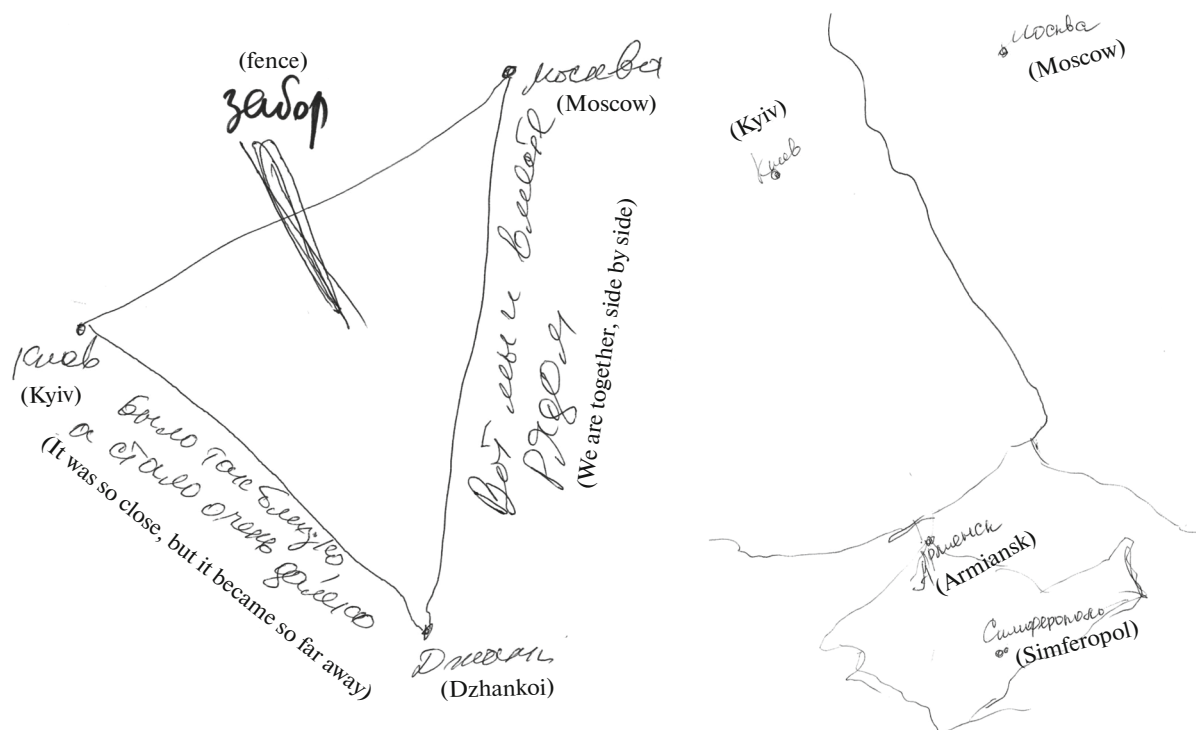 (fence)
забор
москва
(Moscow)
Киев
(Kyiv)
Было так близко
а стало очень далеко
(It was so close, but it became so far away)
Вот мы и вместе
рядом
(We are together, side by side)
(Dzhankoi)
Москва
(Moscow)
(Kyiv)
Киев
(Armiansk)
Симферополь
(Simferopol)